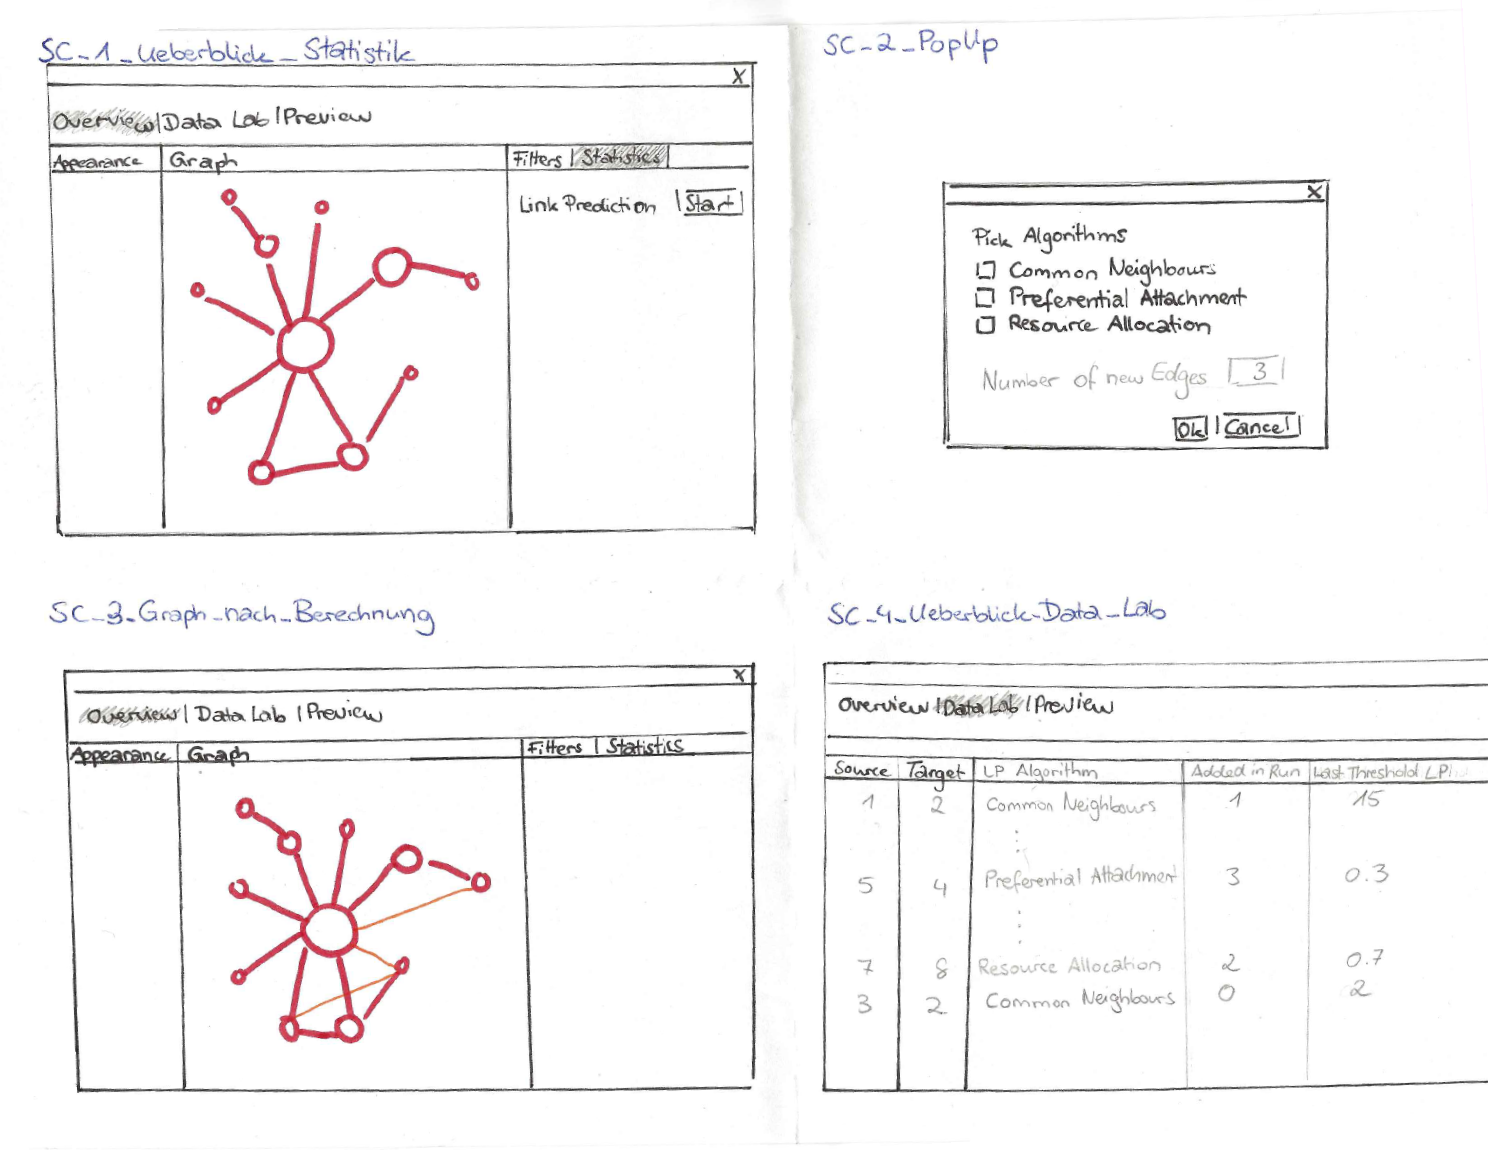 SC_1_Ueberblick_Statistik
X
Overview | Data Lab | Preview
Appearance
Graph
Filters | Statistics |
Link Prediction | Start |
SC_2_PopUp
X
Pick Algorithms
Common Neighbours
Preferential Attachment
Resource Allocation
Number of new Edges 3
Ok | Cancel |
SC_3_Graph_nach_Berechnung
X
Overview | Data Lab | Preview
Appearance
Graph
Filters | Statistics
SC_4_Ueberblick_Data_Lab
Overview | Data Lab | Preview
Source Target LP Algorithm Added in Run Last Threshold LP
1 2 Common Neighbours 1 15
5 4 Preferential Attachment 3 0.3
7 8 Resource Allocation 2 0.7
3 2 Common Neighbours 0 2